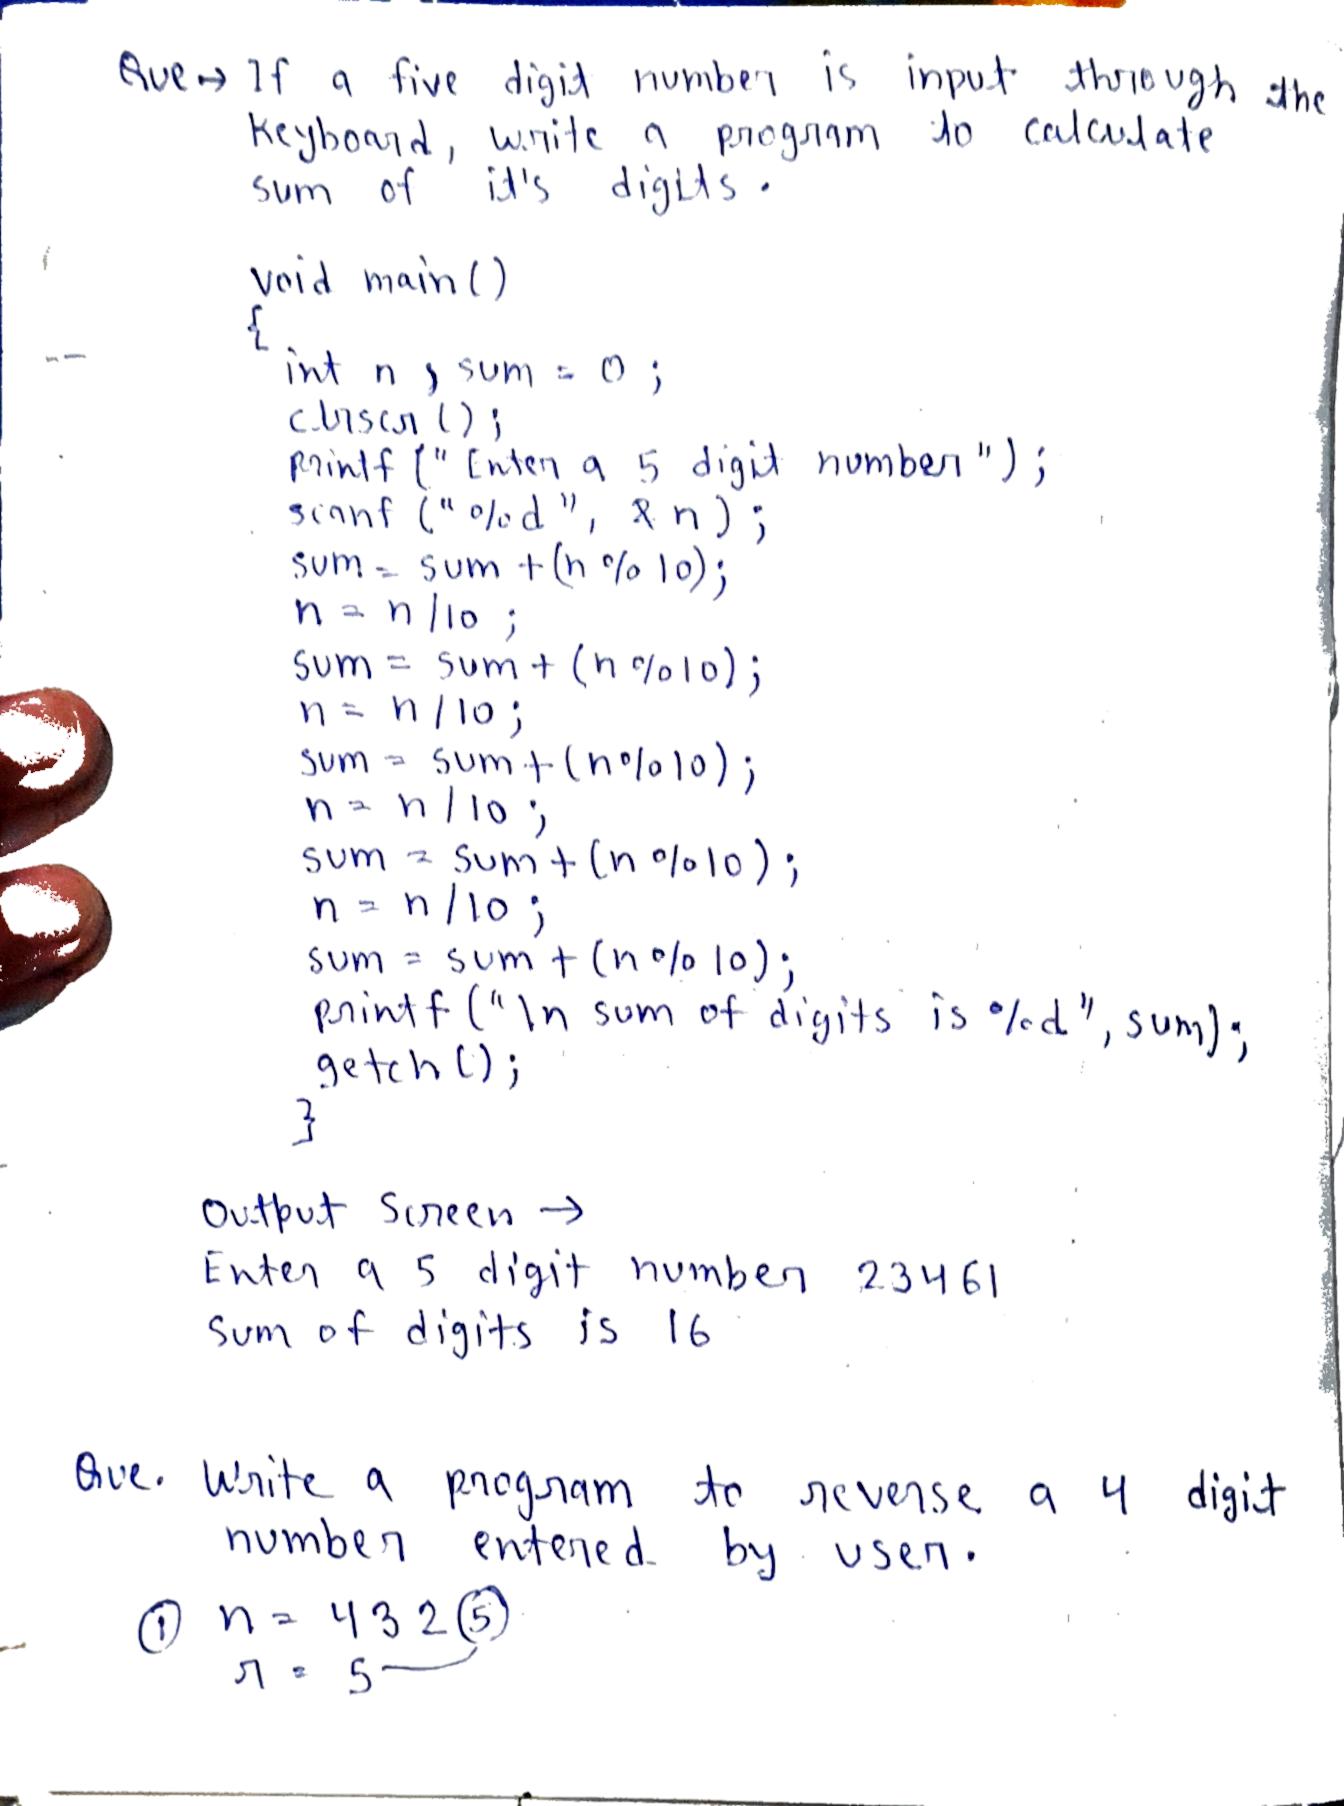 Que → If a five digit number is input through the
Keyboard, write a program to calculate
sum of it's digits.
void main()
{
int n, sum = 0;
clrscr();
printf("Enter a 5 digit number");
scanf("%d", &n);
sum = sum + (n % 10);
n = n/10;
sum = sum + (n%10);
n = n/10;
sum = sum + (n%10);
n = n/10;
sum = sum + (n%10);
n = n/10;
sum = sum + (n%10);
printf("\n sum of digits is %d", sum);
getch();
}
Output Screen →
Enter a 5 digit number 23461
Sum of digits is 16
Que. Write a program to reverse a 4 digit
number entered by user.
① n = 4325
r = 5